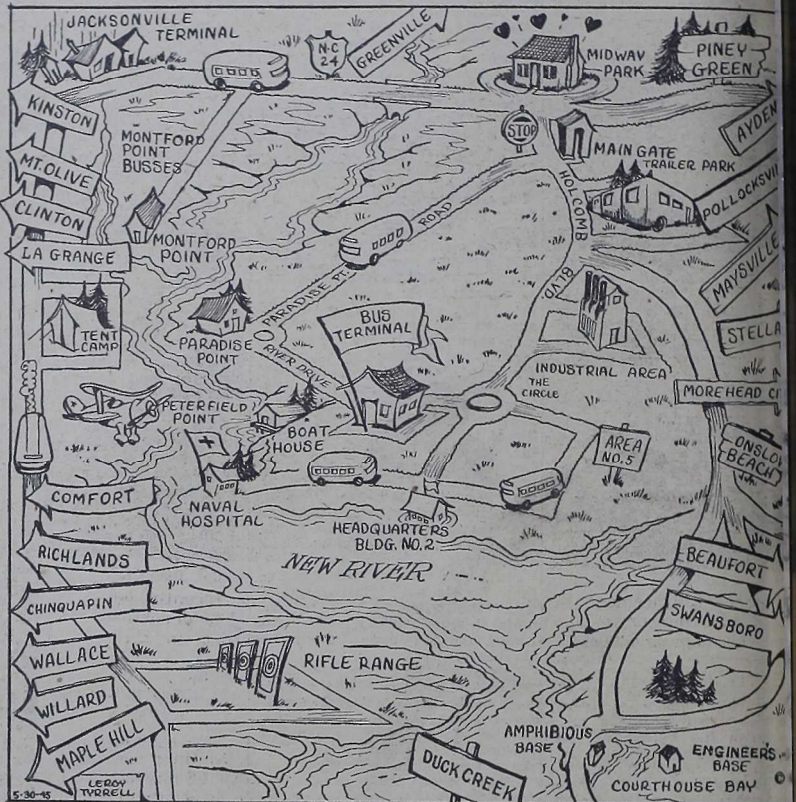 JACKSONVILLE
TERMINAL
N·C
24
GREENVILLE
MIDWAY
PARK
PINEY
GREEN
KINSTON
MT. OLIVE
CLINTON
LA GRANGE
MONTFORD
POINT
BUSSES
MONTFORD
POINT
STOP
MAIN GATE
TRAILER PARK
AYDEN
POLLOCKSVI
MAYSVILLE
STELLA
MOREHEAD CI
ONSLO
BEACH
HOLCOMB
BLVD
PARADISE PT. ROAD
PARADISE
POINT
RIVER DRIVE
TENT
CAMP
BUS
TERMINAL
INDUSTRIAL AREA
THE
CIRCLE
PETERFIELD
POINT
BOAT
HOUSE
AREA
NO. 5
NAVAL
HOSPITAL
HEADQUARTERS
BLDG. NO. 2
NEW RIVER
COMFORT
RICHLANDS
CHINQUAPIN
WALLACE
WILLARD
MAPLE HILL
RIFLE RANGE
BEAUFORT
SWANSBORO
AMPHIBIOUS
BASE
ENGINEER'S
BASE
COURTHOUSE BAY
DUCK CREEK
5-30-45
LEROY
TYRRELL
©